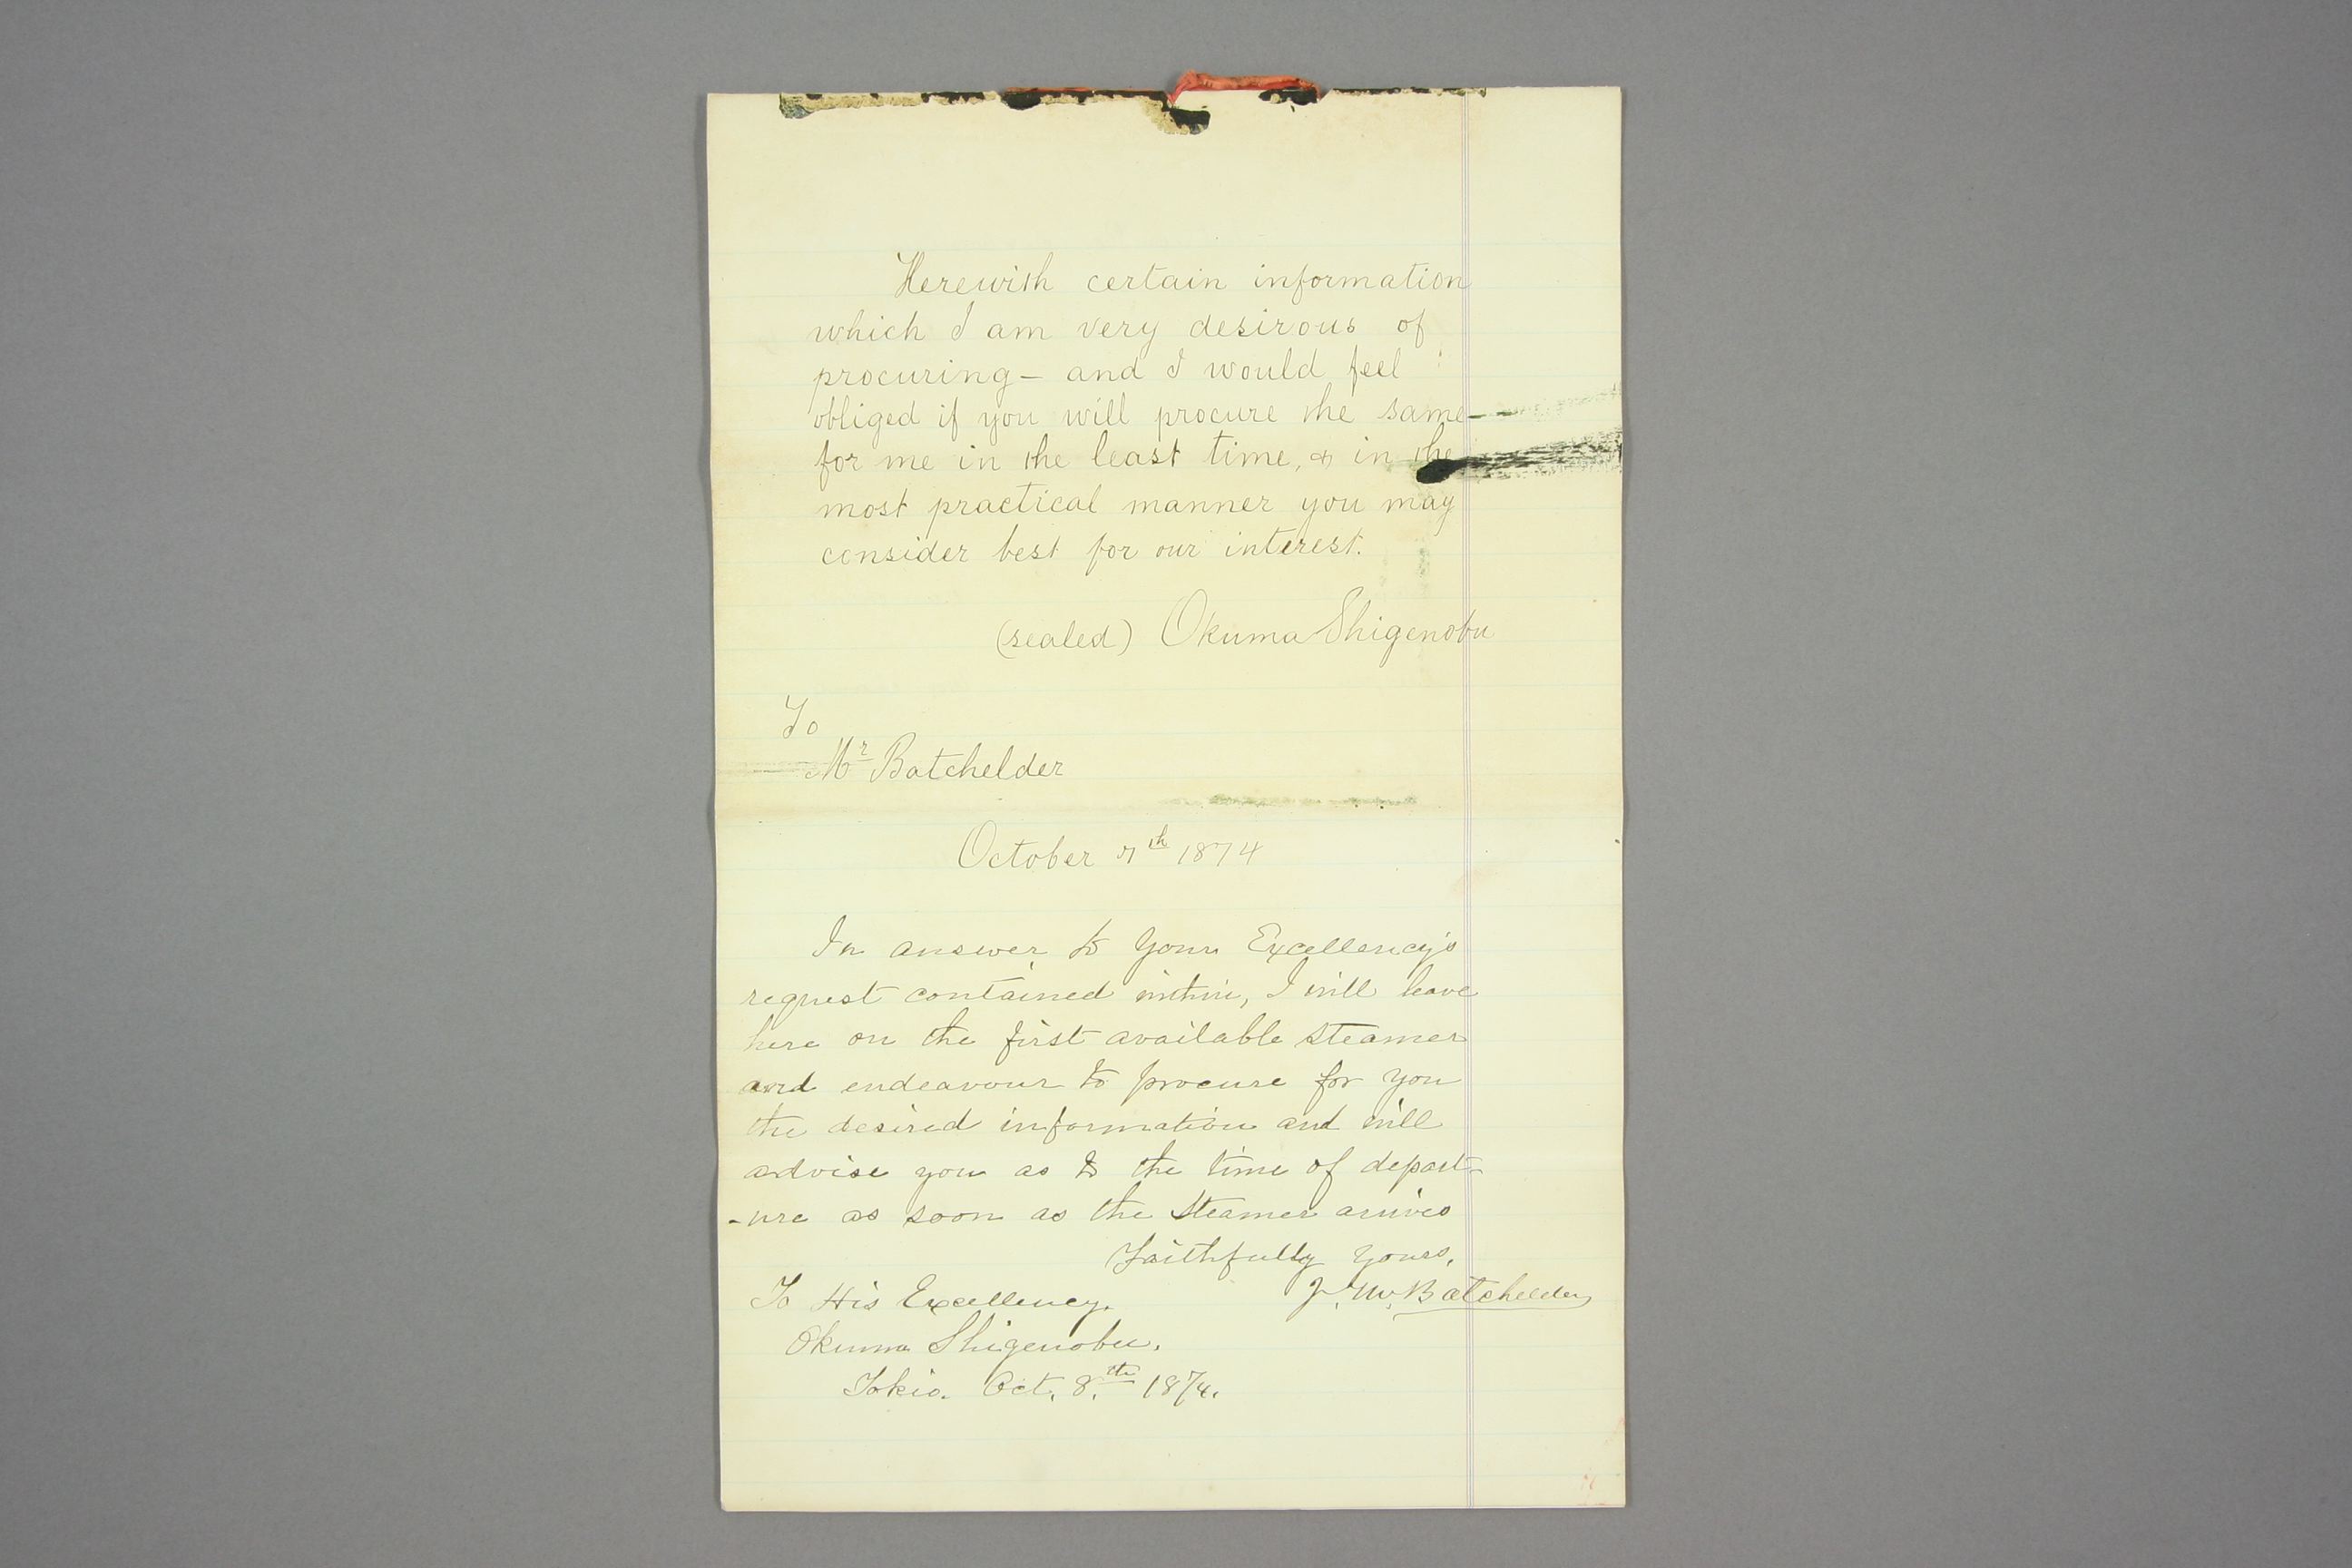 Herewith certain information
which I am very desirous of
procuring — and I would feel
obliged if you will procure the same —
for me in the least time, & in the
most practical manner you may
consider best for our interest.
(sealed) Okuma Shigenobu
To
Mr Batchelder
October 7th 1874
In answer to Your Excellency's
request contained within, I will leave
here on the first available steamer
and endeavour to procure for you
the desired information and will
advise you as to the time of depart-
-ure as soon as the steamer arrives
Faithfully Yours,
J. M. Batchelder
To His Excellency.
Okuma Shigenobu.
Tokio. Oct. 8th 1874.